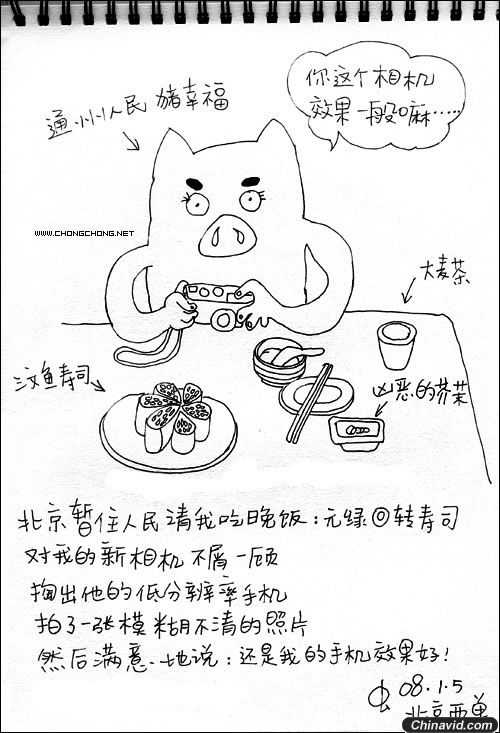 通州人民 猪幸福
你这个相机
效果一般嘛……
www.CHONGCHONG.NET
大麦茶
凶恶的芥茉
文鱼寿司
北京暂住人民请我吃晚饭:元绿回转寿司
对我的新相机不屑一顾
掏出他的低分辨率手机
拍了一张模糊不清的照片
然后满意地说:还是我的手机效果好!
虫 08.1.5
北京西单
Chinavid.com